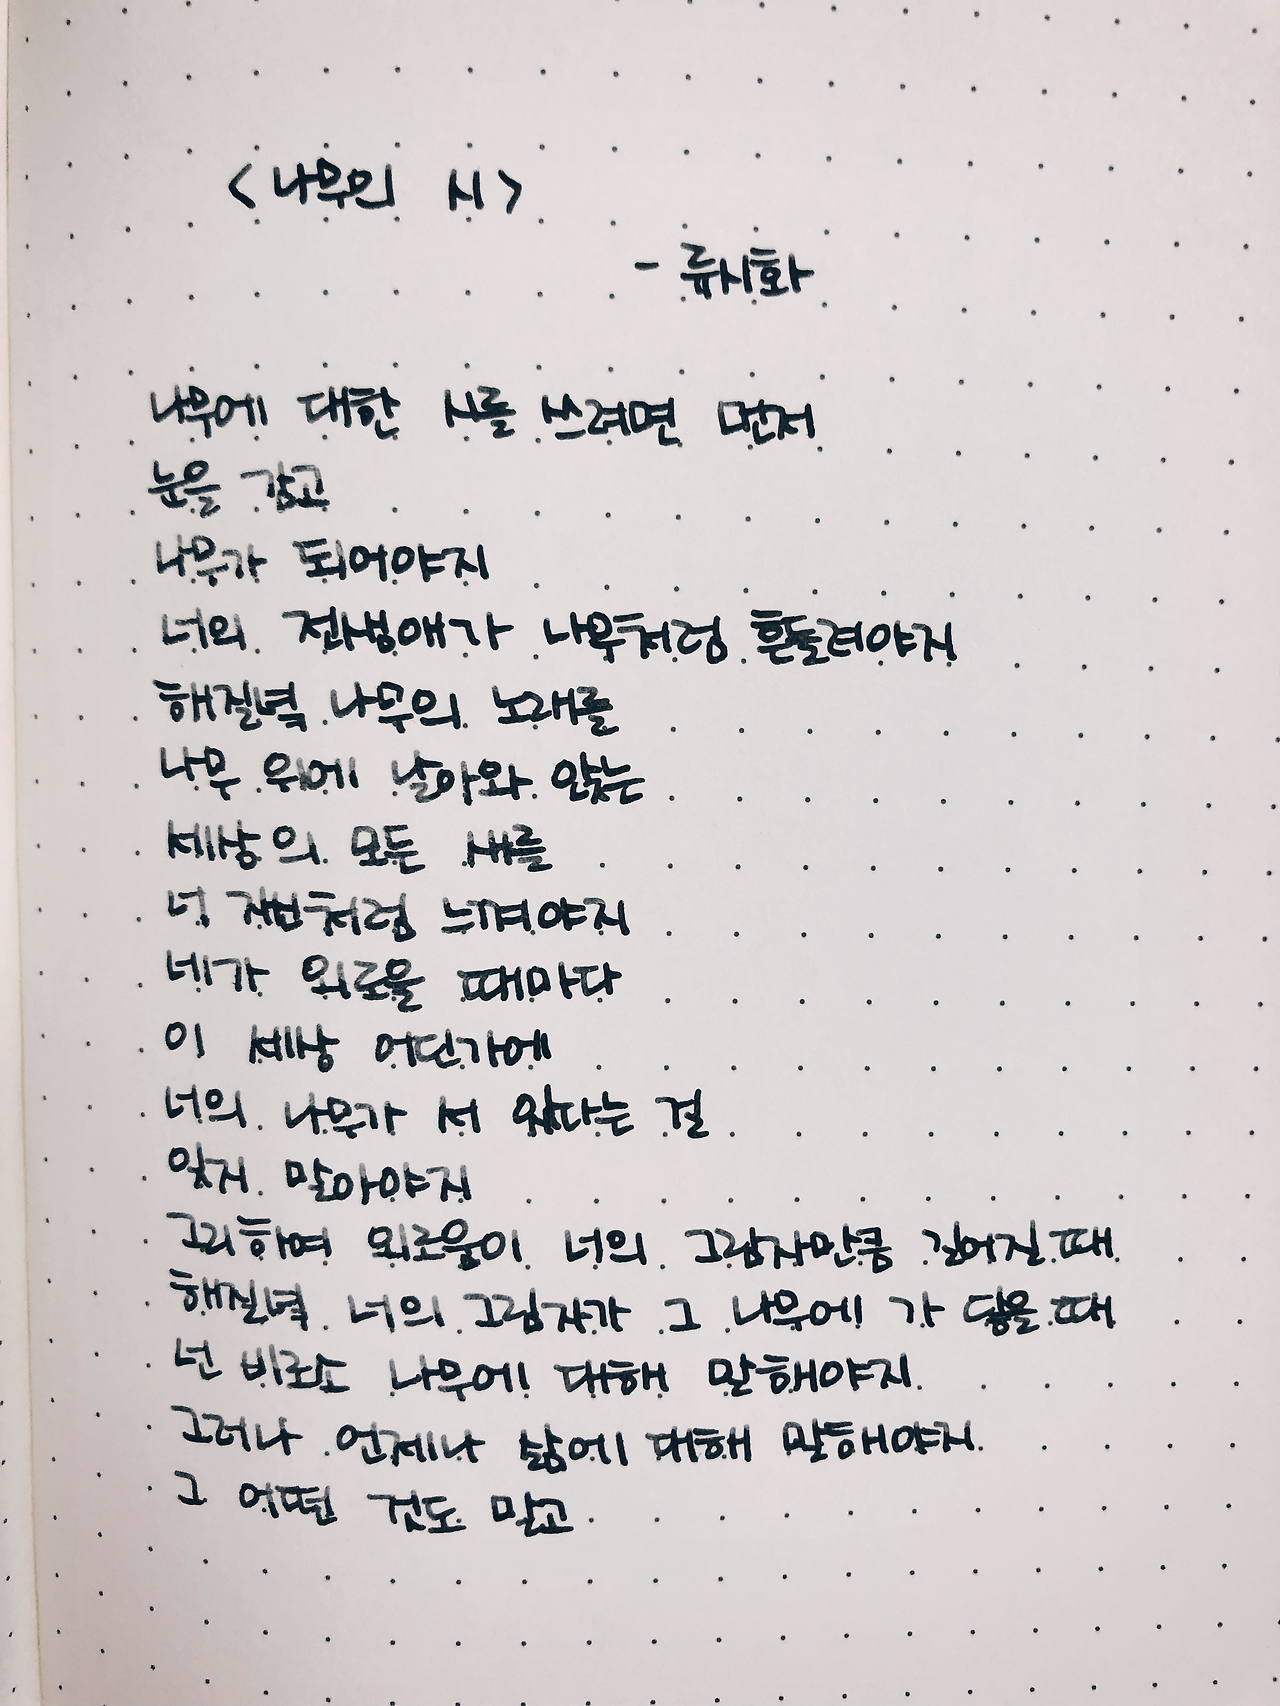 <나무의 시>
- 류시화
나무에 대한 시를 쓰려면 먼저
눈을 감고
나무가 되어야지
너의 전생애가 나무처럼 흔들려야지
해질녘 나무의 노래를
나무 위에 날아와 앉는
세상의 모든 새를
너 자신처럼 느껴야지
네가 외로울 때마다
이 세상 어딘가에
너의 나무가 서 있다는 걸
잊지 말아야지
그리하여 외로움이 너의 그림자만큼 길어질 때
해질녘 너의 그림자가 그 나무에 가 닿을 때
넌 비로소 나무에 대해 말해야지
그러나 언제나 삶에 대해 말해야지
그 어떤 것도 말고